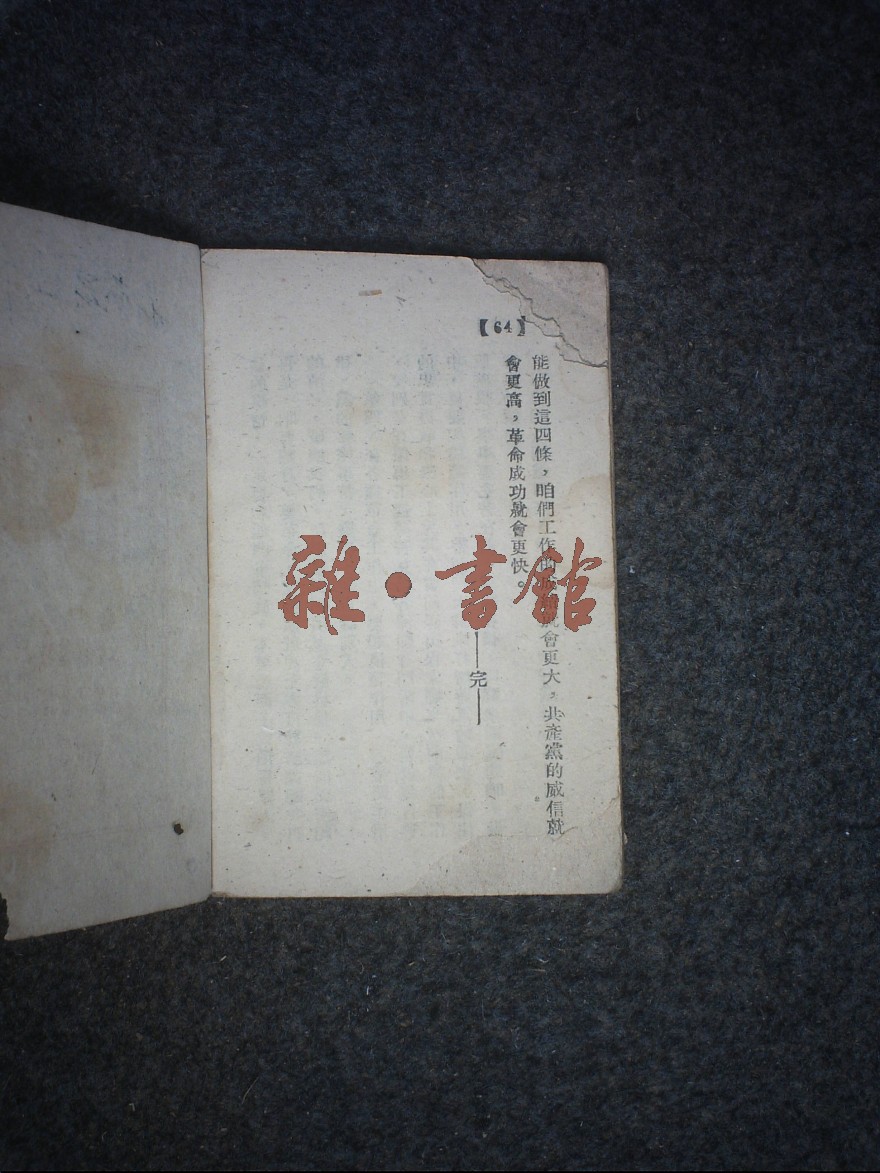 【64】
能做到這四條，咱們工作的會更大，共產黨的威信就
會更高，革命成功就會更快。
——完——
雜·書館